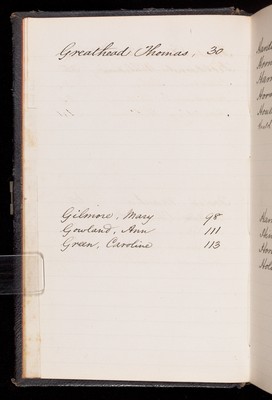 Greathead Thomas, 30
Gilmore, Mary 98
Gowland, Ann 111
Green, Caroline 113